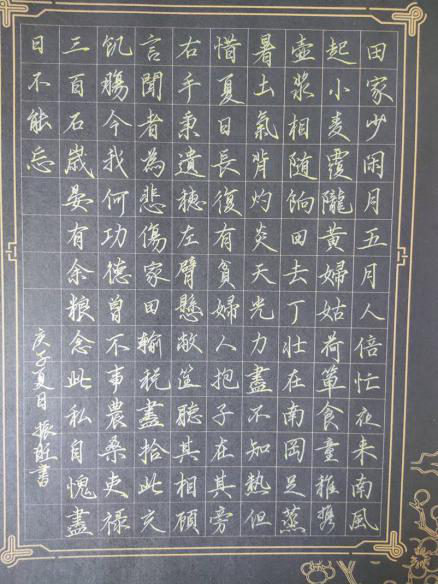 田家少闲月五月人倍忙夜来南風
起小麦覆隴黄婦姑荷箪食童稚携
壺浆相随餉田去丁壮在南岡足蒸
暑土氣背灼炎天光力盡不知熱但
惜夏日長復有貧婦人抱子在其旁
右手秉遺穗左臂懸敝筐聽其相顧
言聞者為悲傷家田輸税盡拾此充
飢腸今我何功德曾不事農桑吏禄
三百石歲晏有余粮念此私自愧盡
日不能忘
庚子夏日振旺書